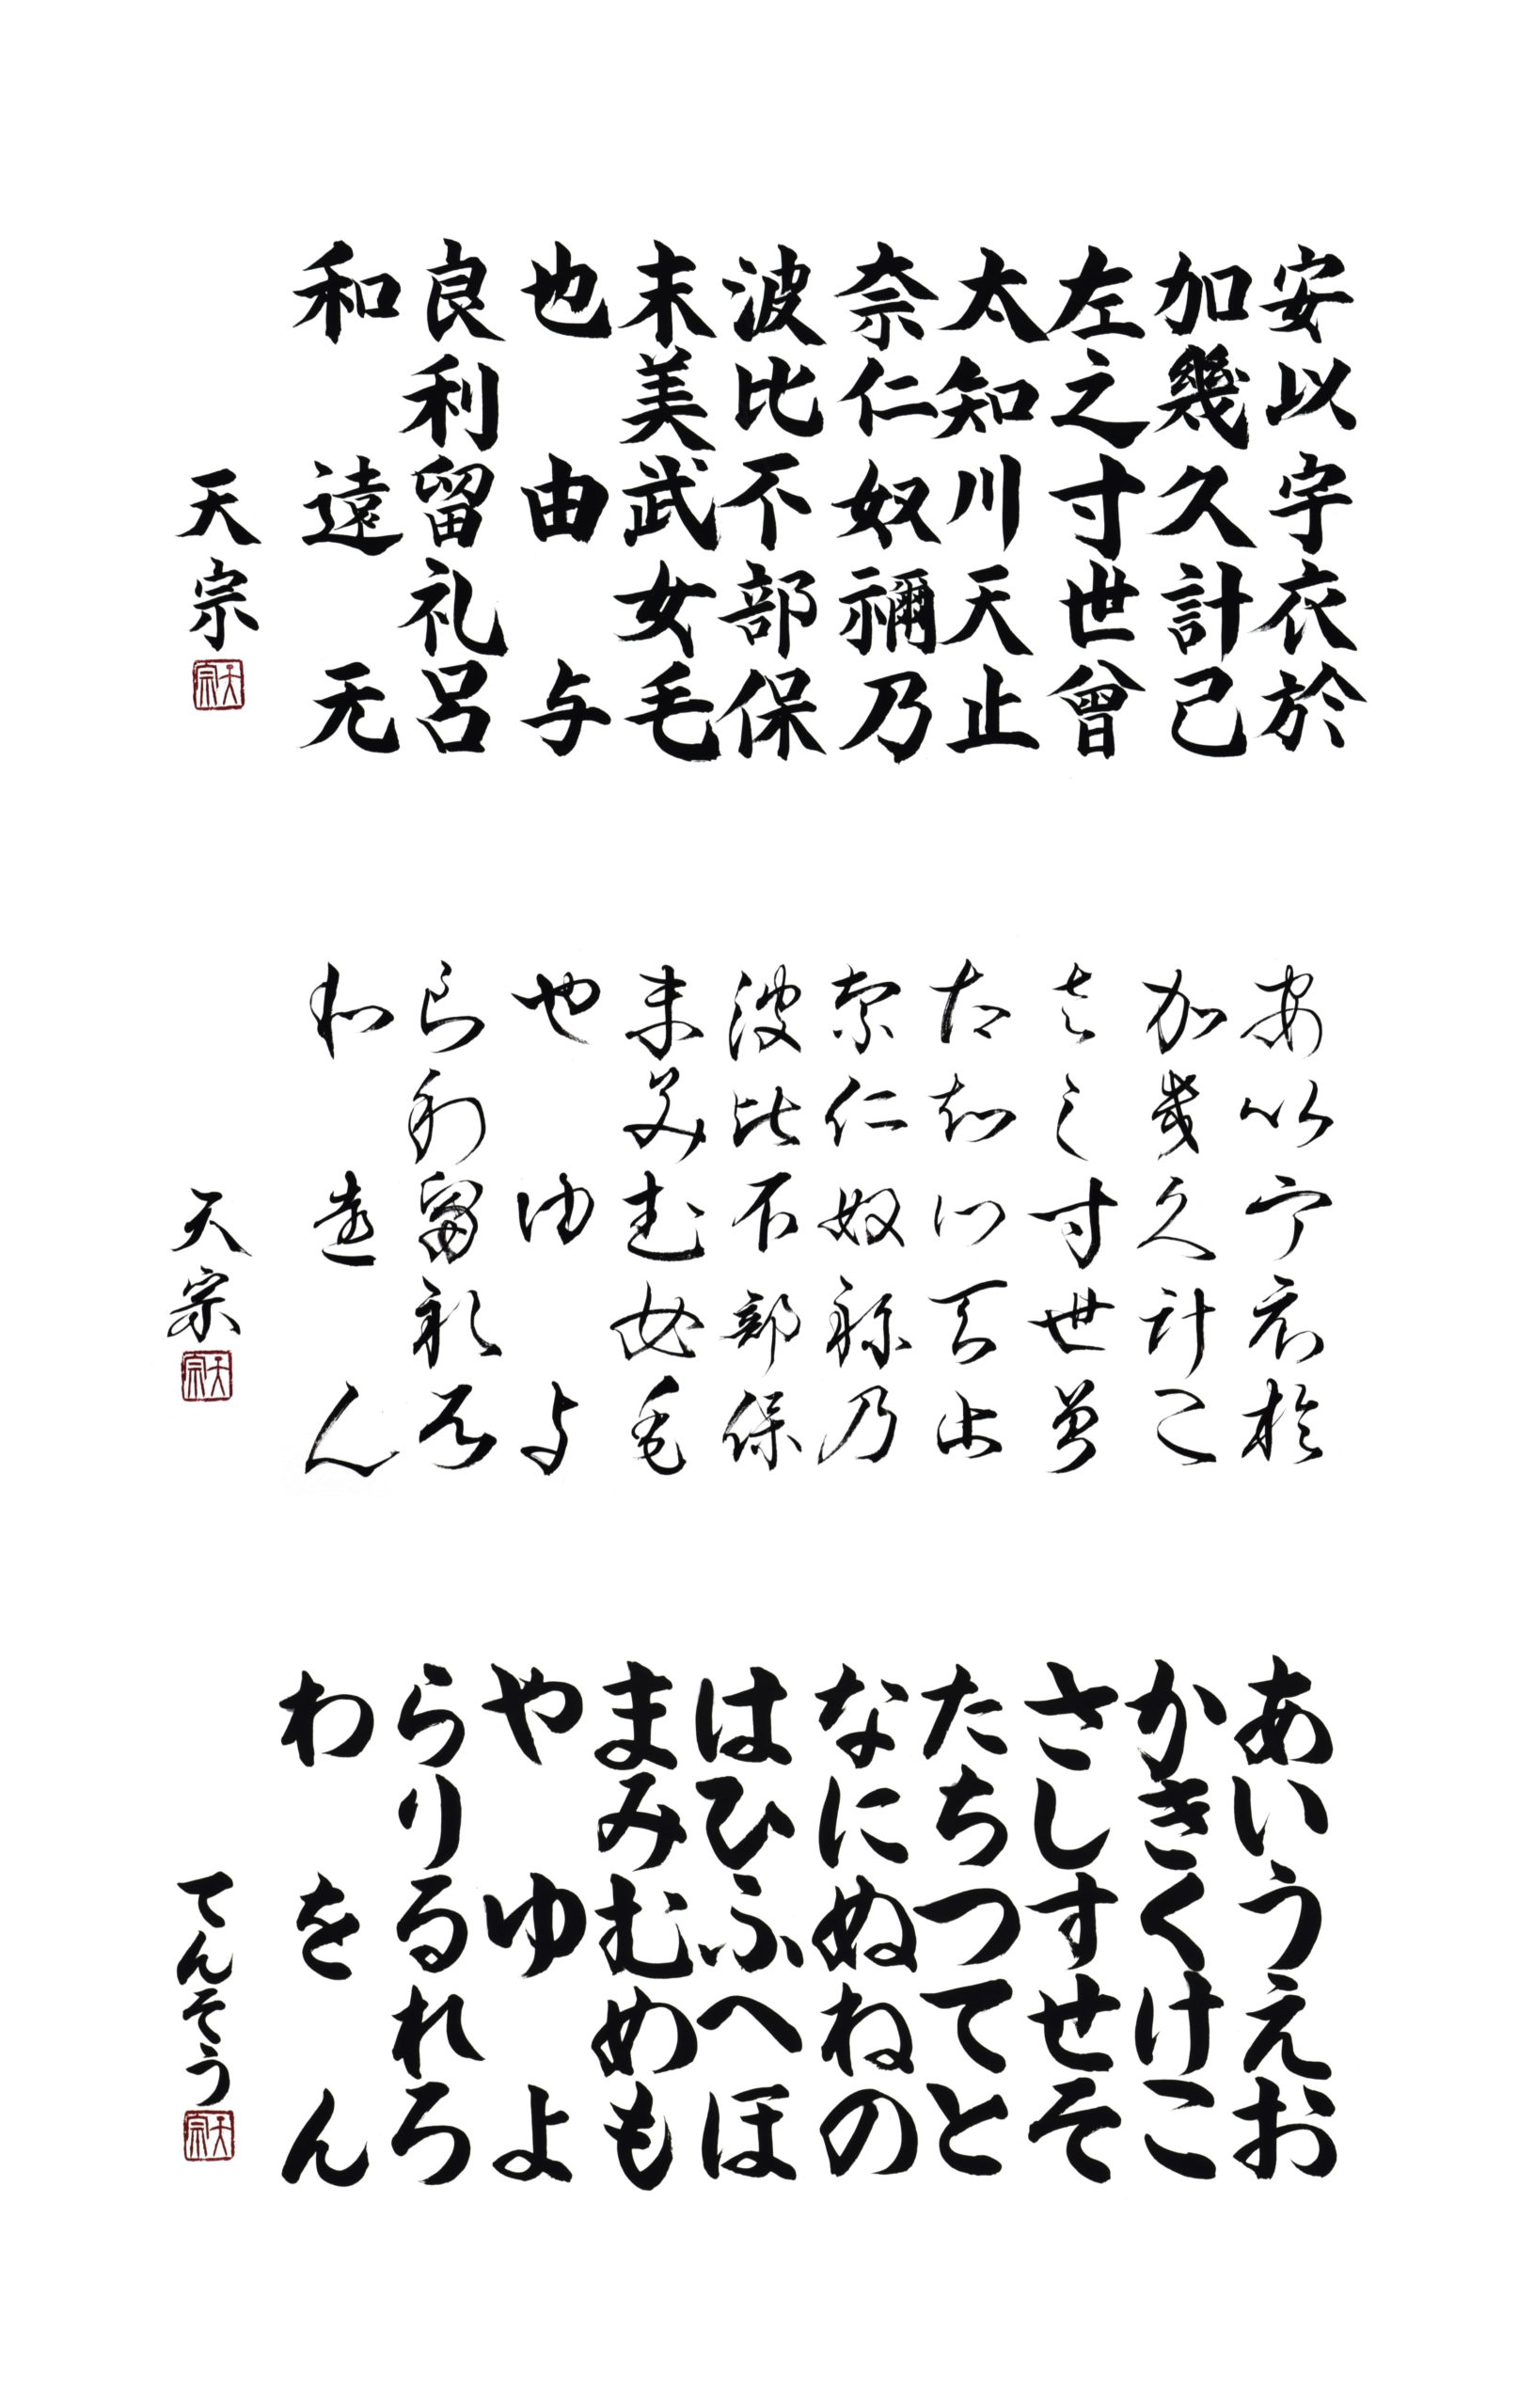 安以宇衣於
加幾久計己
左之寸世曽
太知川天止
奈仁奴禰乃
波比不部保
末美武女毛
也由与
良利留礼呂
和遠无
天宗
天宗
安以宇衣於
加幾久計己
左之寸世曽
太知川天止
奈仁奴祢乃
波比不部保
末美武女毛
也由与
良利留礼呂
和遠无
天宗
天宗
あいうえお
かきくけこ
さしすせそ
たちつてと
なにぬねの
はひふへほ
まみむめも
やゆよ
らりるれろ
わをん
てんそう
天宗